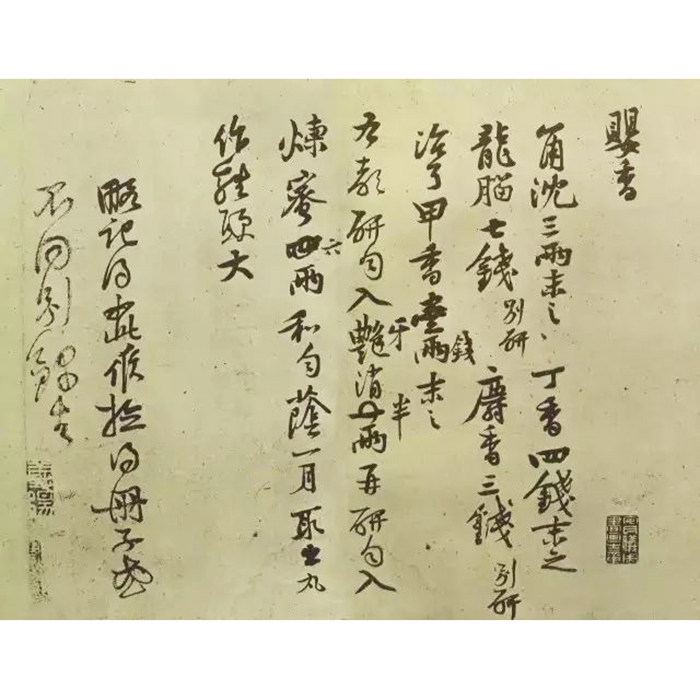 嬰香
角沈三兩末之 丁香四錢末之
龍腦七錢別研 麝香三錢別研
治了甲香壹兩錢末之
右都研勻入艷牙消半兩再研勻入
煉蜜四六兩和勻蔭一月取出丸
作雞頭大
略記得此候撿得冊子或
不同別錄去